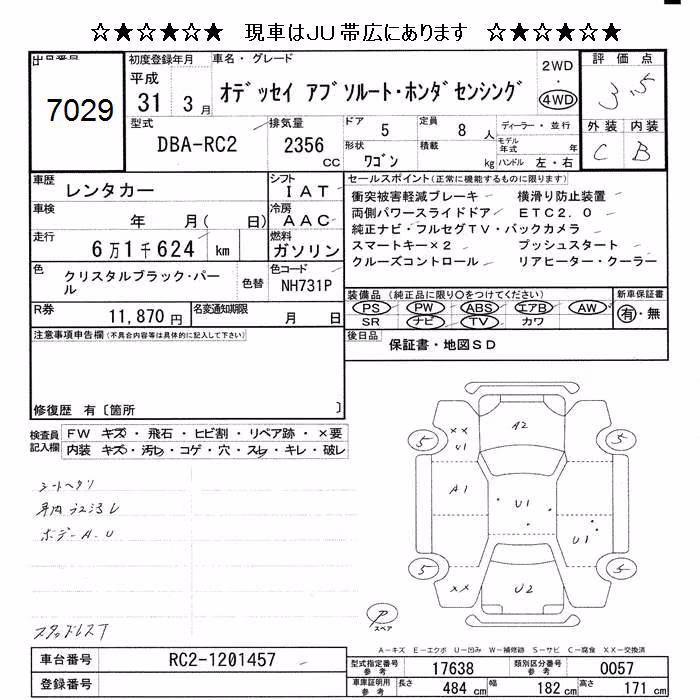 ☆★☆★☆★ 現車はJU帯広にあります ☆★☆★☆★
出品番号
7029
初度登録年月
平成
31 3 月
車名・グレード
オデッセイ アブソルート・ホンダセンシング
2WD
・
4WD
評価点
3.5
外装 内装
C B
型式
DBA-RC2
排気量
2356
cc
ドア 5
定員 8 人
形状 ワゴン
積載 kg
ディーラー・並行
モデル年式 年
ハンドル 左・右
車歴 レンタカー
シフト IAT
車検 年 月( 日)
冷房 AAC
走行 6万1千624 km
燃料 ガソリン
色 クリスタルブラック・パール
色替
色コード NH731P
R券 11,870 円
名変通知期限 月 日
セールスポイント(正常に機能するものに限ります)
衝突被害軽減ブレーキ 横滑り防止装置
両側パワースライドドア ETC2.0
純正ナビ・フルセグTV・バックカメラ
スマートキー×2 プッシュスタート
クルーズコントロール リアヒーター・クーラー
装備品 (純正品に限り○をつけてください)
PS PW ABS エアB AW
SR ナビ TV カワ
新車保証書
有・無
後日品 保証書・地図SD
注意事項申告欄(不具合内容等は具体的に記入して下さい)
修復歴 有〔箇所 〕
検査員記入欄
FW キズ・飛石・ヒビ割・リペア跡・×要
内装 キズ・汚レ・コゲ・穴・スレ・キレ・破レ
シートヘタリ
車内 レ
ボデーA.U
スタッドレスT
A2
××
U1
5
5
A1
U1
U1
5
5
××
U2
P
スペア
A-キズ E-エクボ U-凹み W-補修跡 S-サビ C-腐食 XX-交換済
車台番号 RC2-1201457
登録番号
型式指定番号 参考 17638
類別区分番号 参考 0057
車庫証明用 参考 長さ 484 cm 幅 182 cm 高さ 171 cm